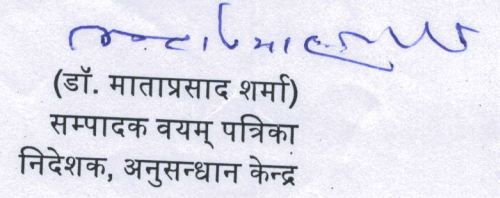 (डॉ. माताप्रसाद शर्मा)
सम्पादक वयम् पत्रिका
निदेशक, अनुसन्धान केन्द्र